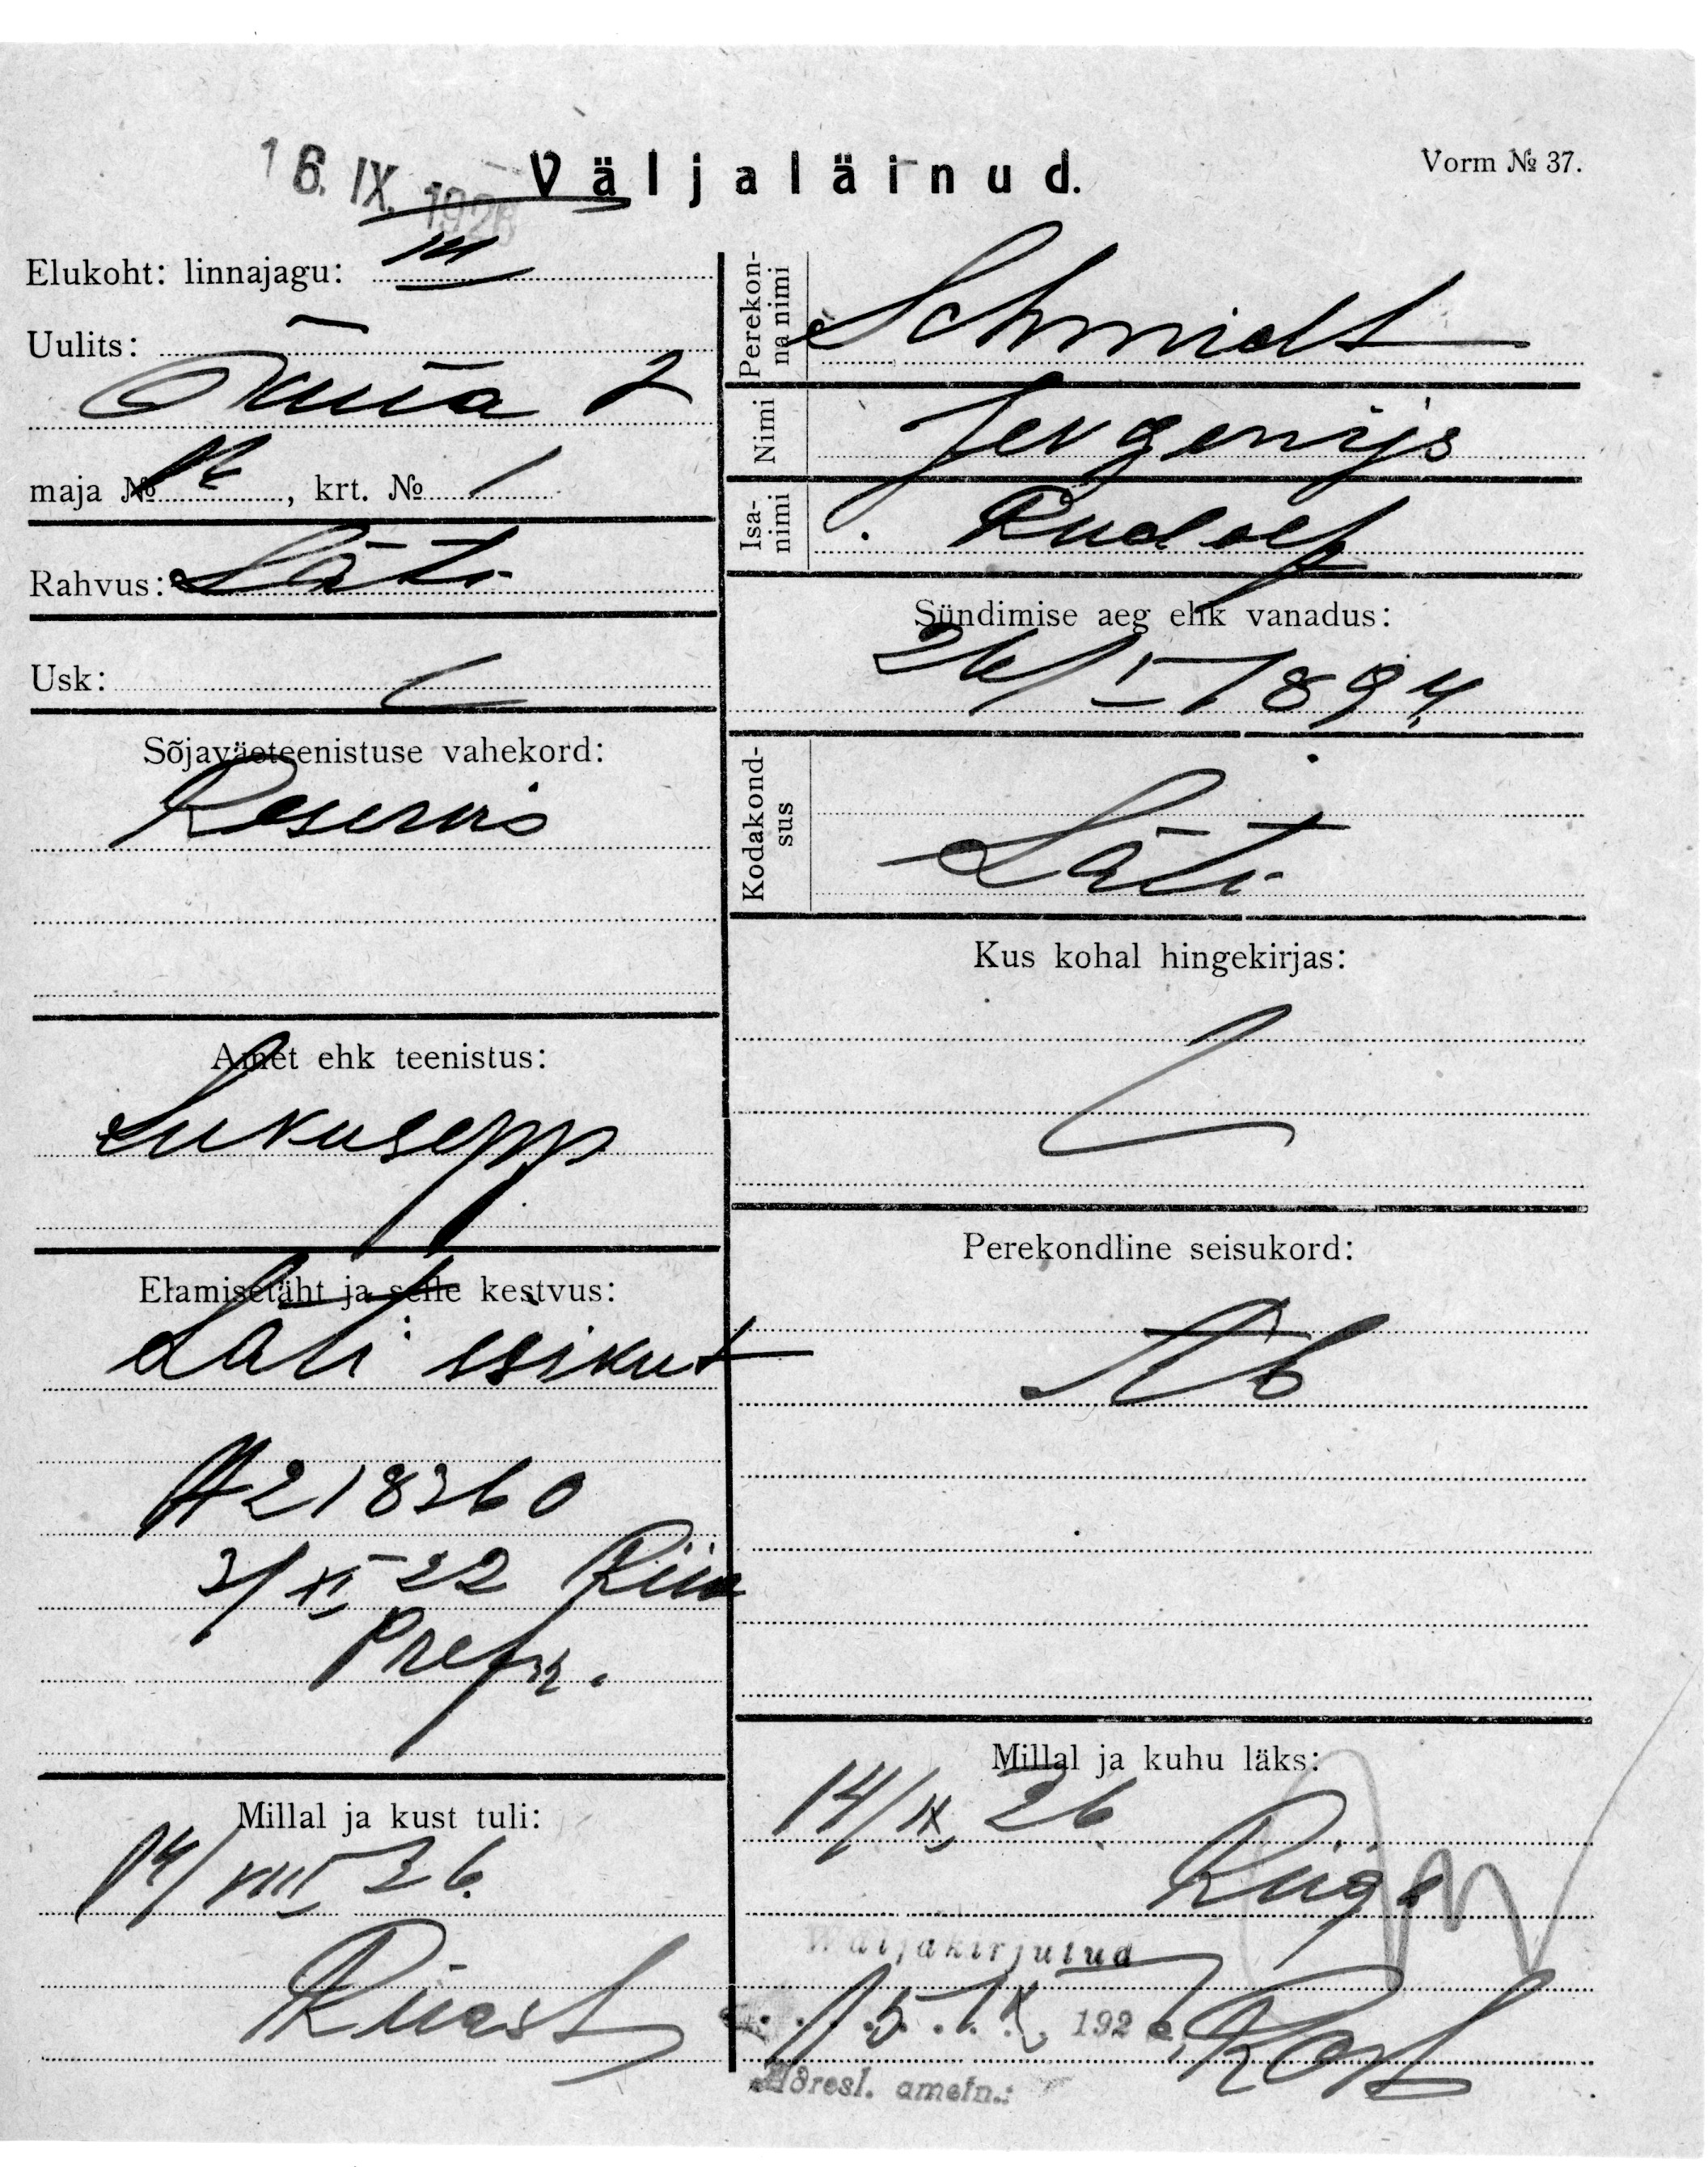 16. IX. 1926
Väljaläinud.
Vorm № 37.
Elukoht: linnajagu: III
Uulits:
maja № 12, krt. № 1
Rahvus: Läti
Usk:
Sõjaväeteenistuse vahekord:
Reservis
Amet ehk teenistus:
Lukusepp
Elamisetäht ja selle kestvus:
Läti isikut
A218360
3/XI 22 Riia
Prefr.
Millal ja kust tuli:
14/VIII 26.
Riiast
Perekonna nimi Schmidt
Nimi Jevgenijs
Isanimi Rudolf
Sündimise aeg ehk vanadus:
26/I 1894
Kodakondsus Läti
Kus kohal hingekirjas:
Perekondline seisukord:
Ab
Millal ja kuhu läks:
14/IX 26.
Riiga
Wäljakirjutud
15. IX 1926
Adresl. ametn.: